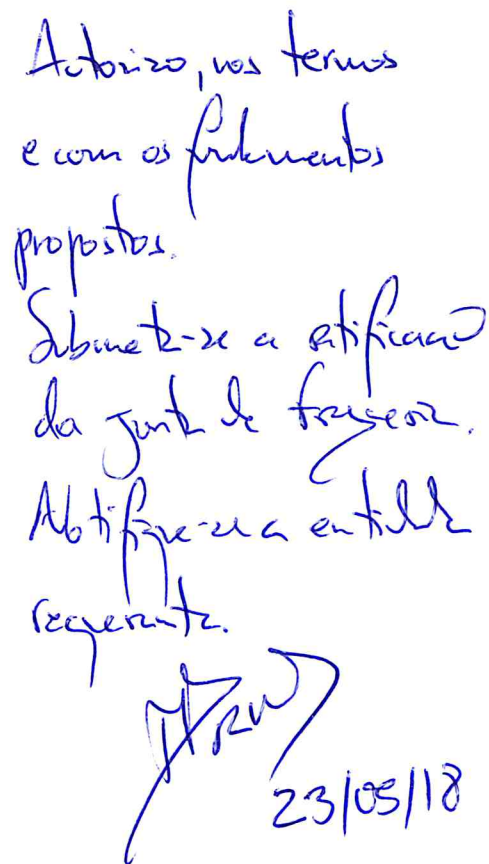 Autorizo, nos termos
e com os fundamentos
propostos.
Submeta-se a ratificação
da Junta de Freguesia.
Notifique-se a entidade
requerente.
23/05/18